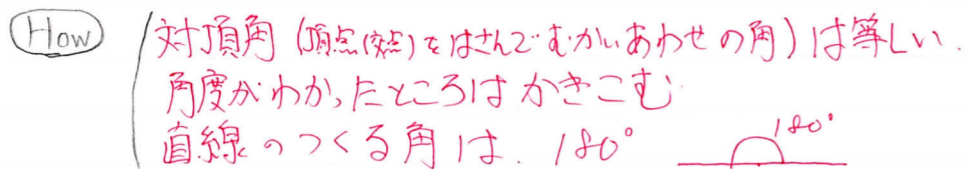 How
対頂角(頂点(交点)をはさんでむかいあわせの角)は等しい.
角度がわかったところはかきこむ
直線のつくる角は. 180°
180°